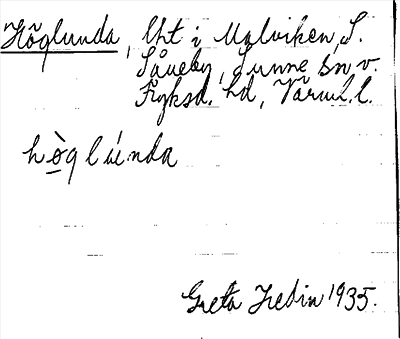 Höglunda, Uht i Malviken, S.
Såneby, Sunne sn v.
Fryksd. hd, Värml. l.
hòglúnda
Greta Hedin 1935.